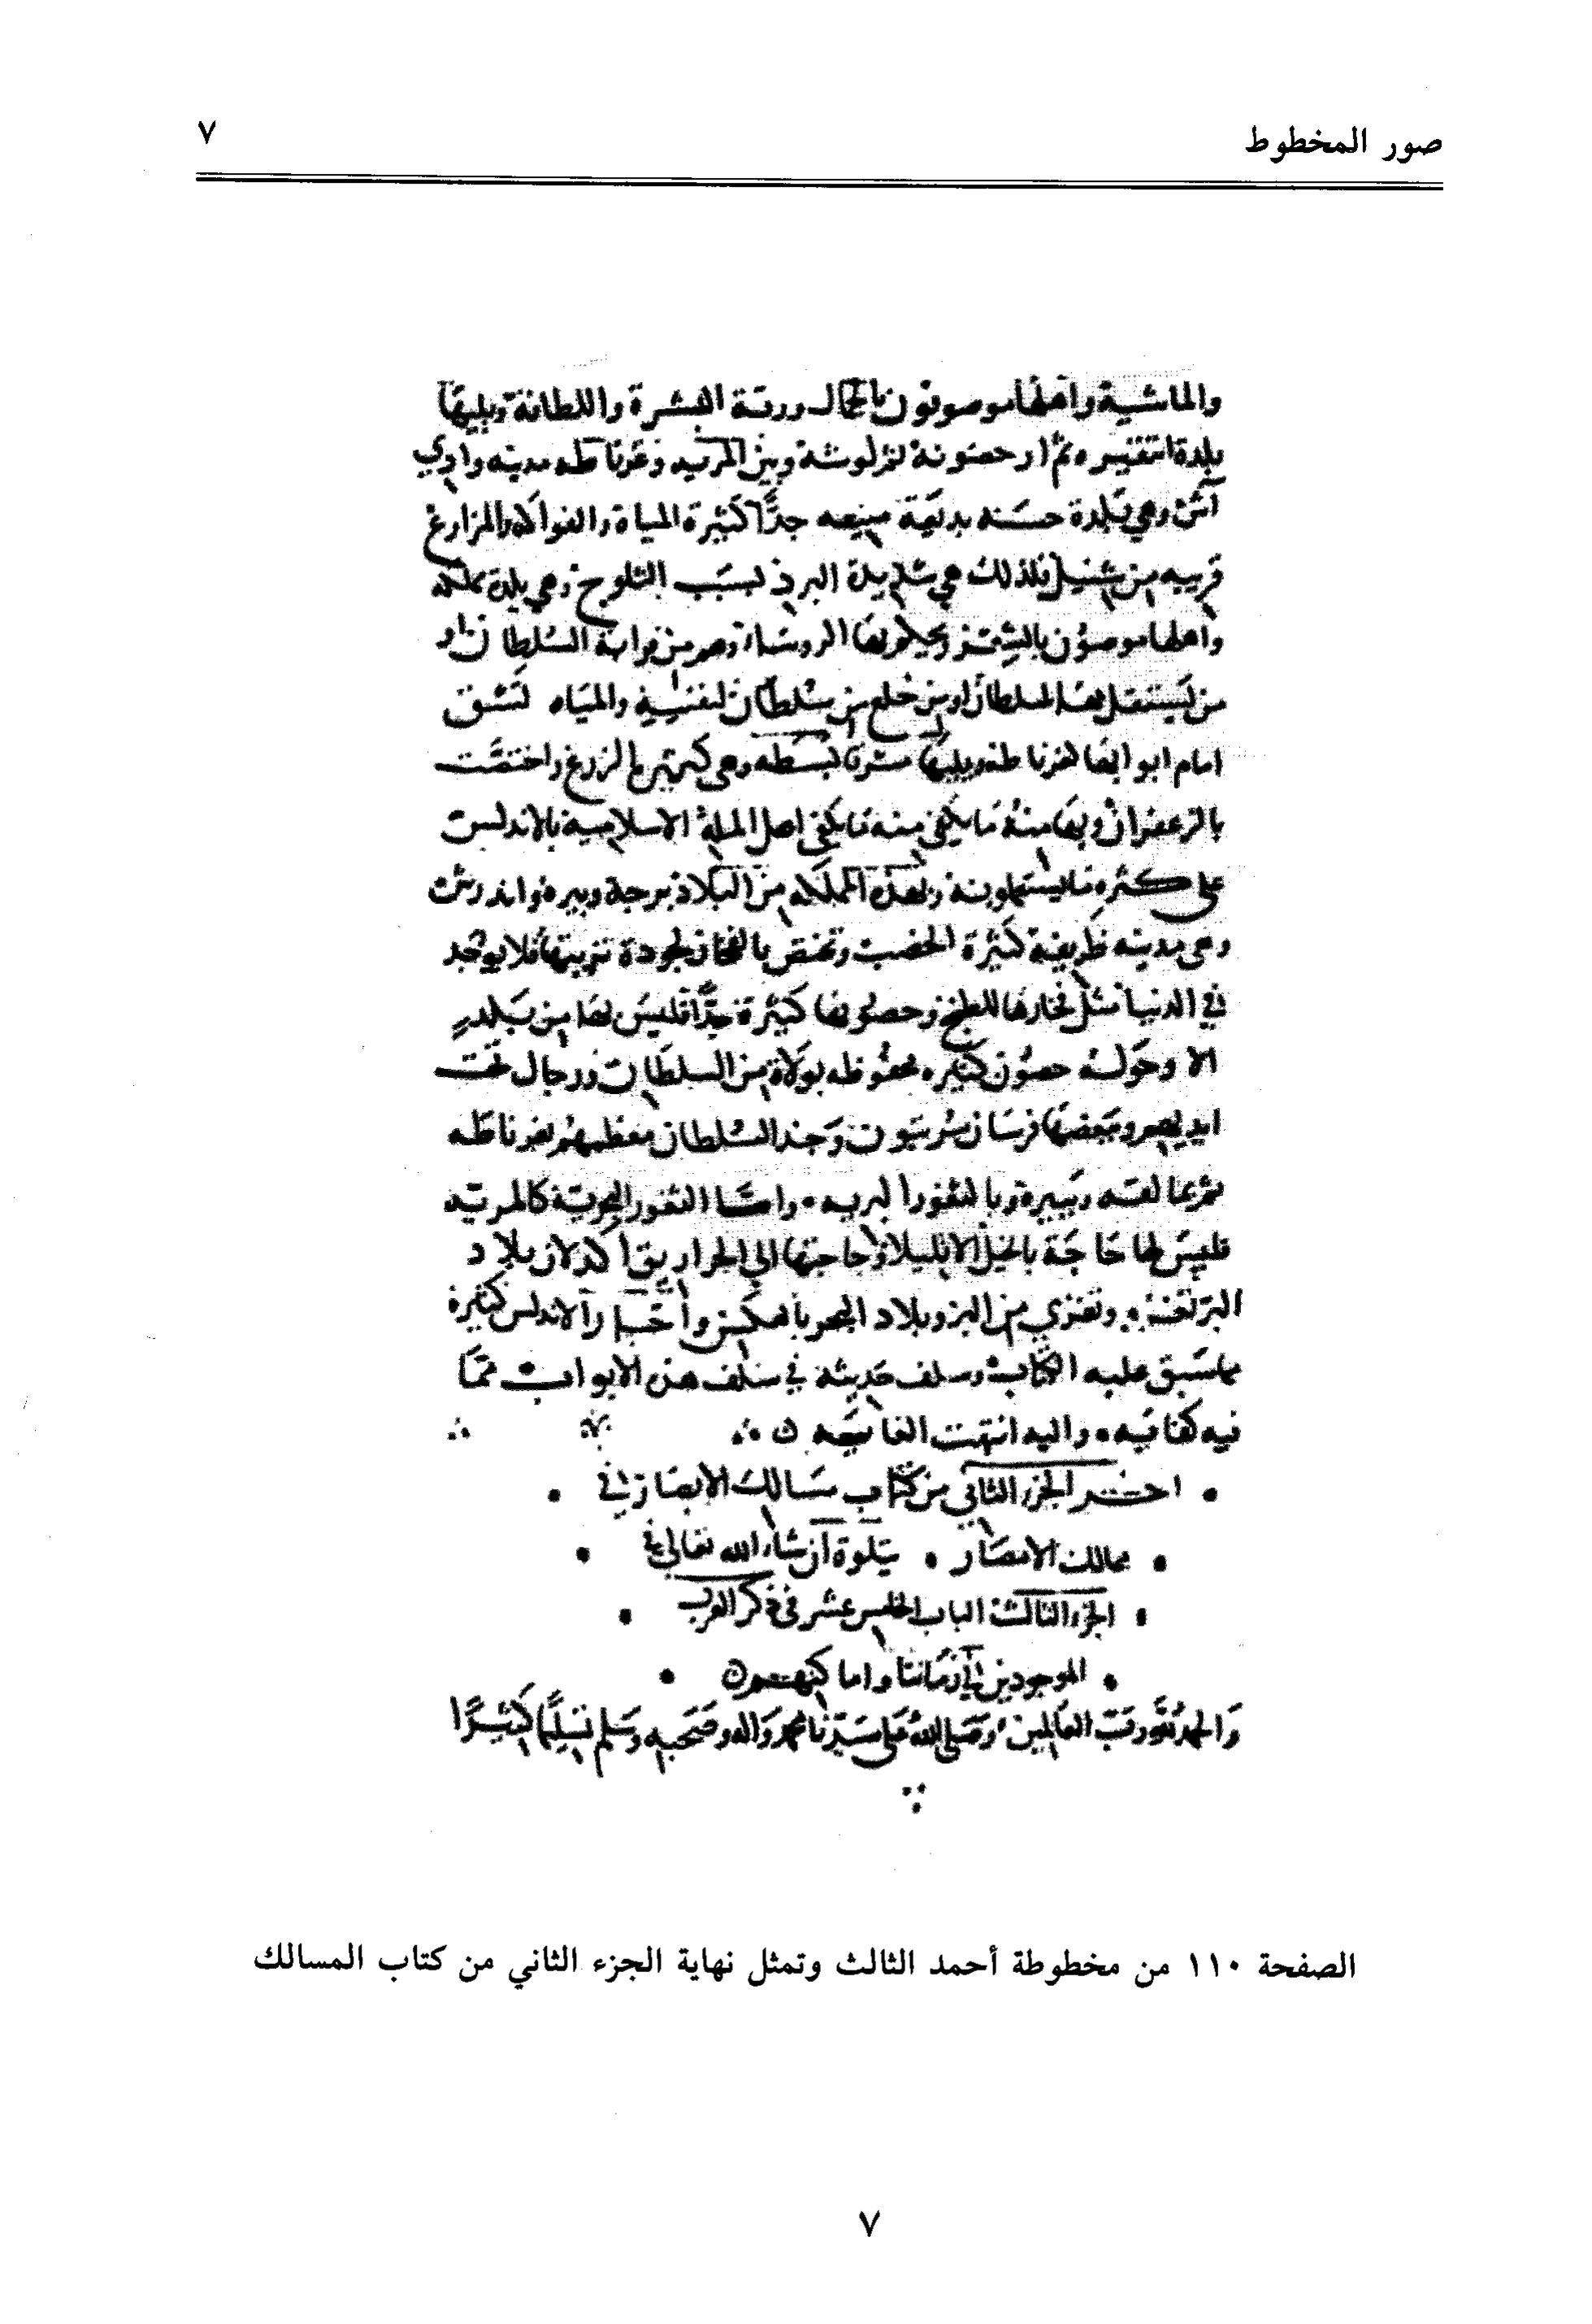 صور المخطوط ٧
والماشية واهلها موصوفون بالجمال ورقة البشرة واللطافة ويليها
بلدة انتقيره ثم ارحصونة ثم لوشة وبين المرية وغرناطه مدينه وادي
آش وهي بلدة حسنه بديعة منيعه جدًّا كثيرة المياه والفواكه والمزارع
قريبه من شنيل فلذلك هي شديدة البرد بسبب الثلوج وهي بلدة مملكه
واهلها موصوفون بالشعر ويحكم بها الروساء وهم من قرابة السلطان او
من يستقل بها السلطان او من خلع من سلطان لنفسه والمياه تشق
امام ابوابها كغرناطه ويليها شرقا بسطه وهى كثيرة الزرع واختصت
بالزعفران وبها منه ما يكفى منه ما يكفى اهل الملة الاسلامية بالاندلس
على كثره ما يستعملونه وبهذه المملكه من البلاد برجة وبيره واندرش
وهى مدينه ظريفة كثيرة الخصب وتختص بالفخار لجودة تربتها فلا يوجد
في الدنيا مثل فخارها للطبخ وحصونها كثيرة جدًّا فليس بها من بلد
الا وحوله حصون كثيره محفوظه بولاة من السلطان ورجال تحت
ايديهم وبعضها فرسان مرتبون وجند السلطان معظمهم بغرناطه
ثم بمالقه وبيرة وبالثغور البريه واما الثغور البحرية كالمرية
فليس لها حاجة بالخيل الا قليلا وحاجتها الى الحراريق اكد لان بلاد
البر تغزى من البر وبلاد البحر بالعكس وأخبار الاندلس كثيره
مما سبق عليه الكتاب وسلف حديثه في سالف هذه الابواب مما
فيه كفايه واليه انتهت الغايه
اخر الجزء الثاني من كتاب مسالك الأبصار في
ممالك الامصار يتلوة ان شاء الله تعالى في
الجزء الثالث الباب الخامس عشر فى ذكر العرب
الموجودين في زماننا واماكنهم
وَالحمد لله رب العالمين وصلى الله على سيدنا محمد وآله وصحبه وسلم تسليمًا كثيرًا
الصفحة ١١٠ من مخطوطة أحمد الثالث وتمثل نهاية الجزء الثاني من كتاب المسالك
٧